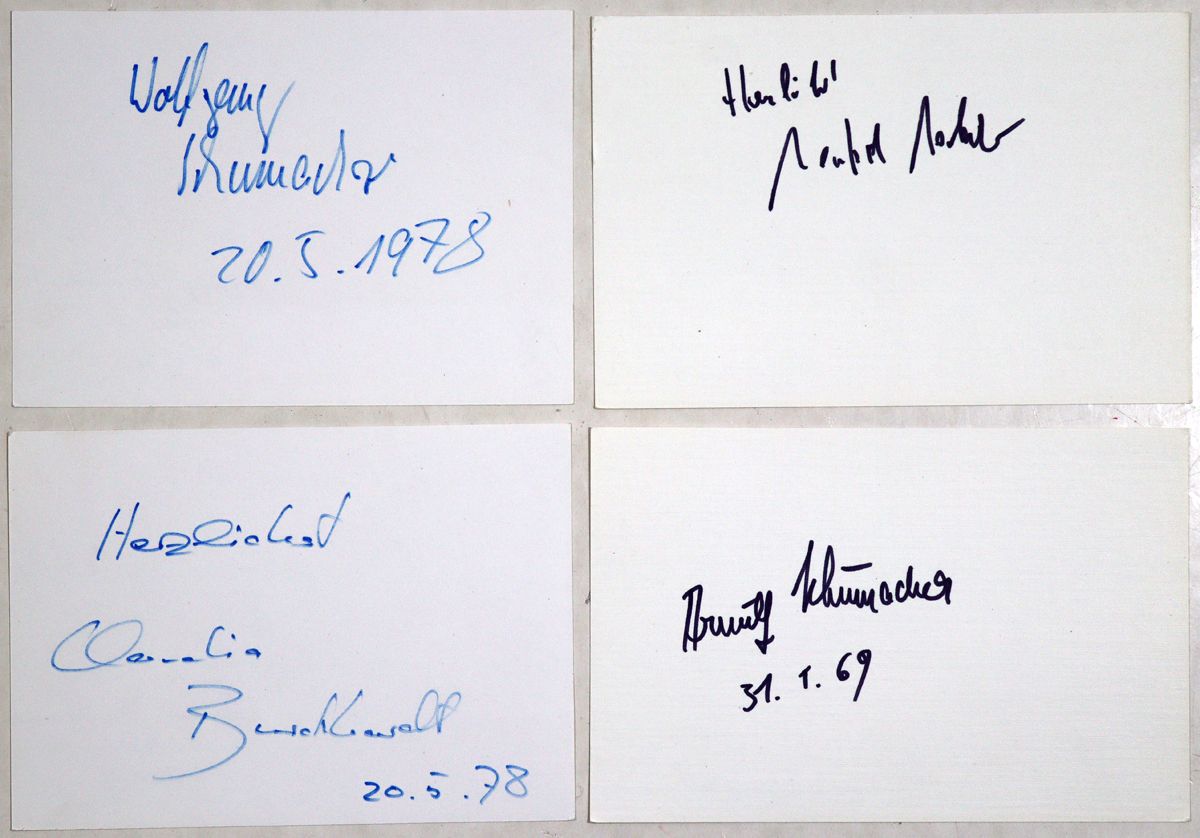 Wolfgang
Schumacher
20.5.1978
Herzlichst
Herzlichst
Claudia
20.5.78
Arnulf Schumacher
31.1.69